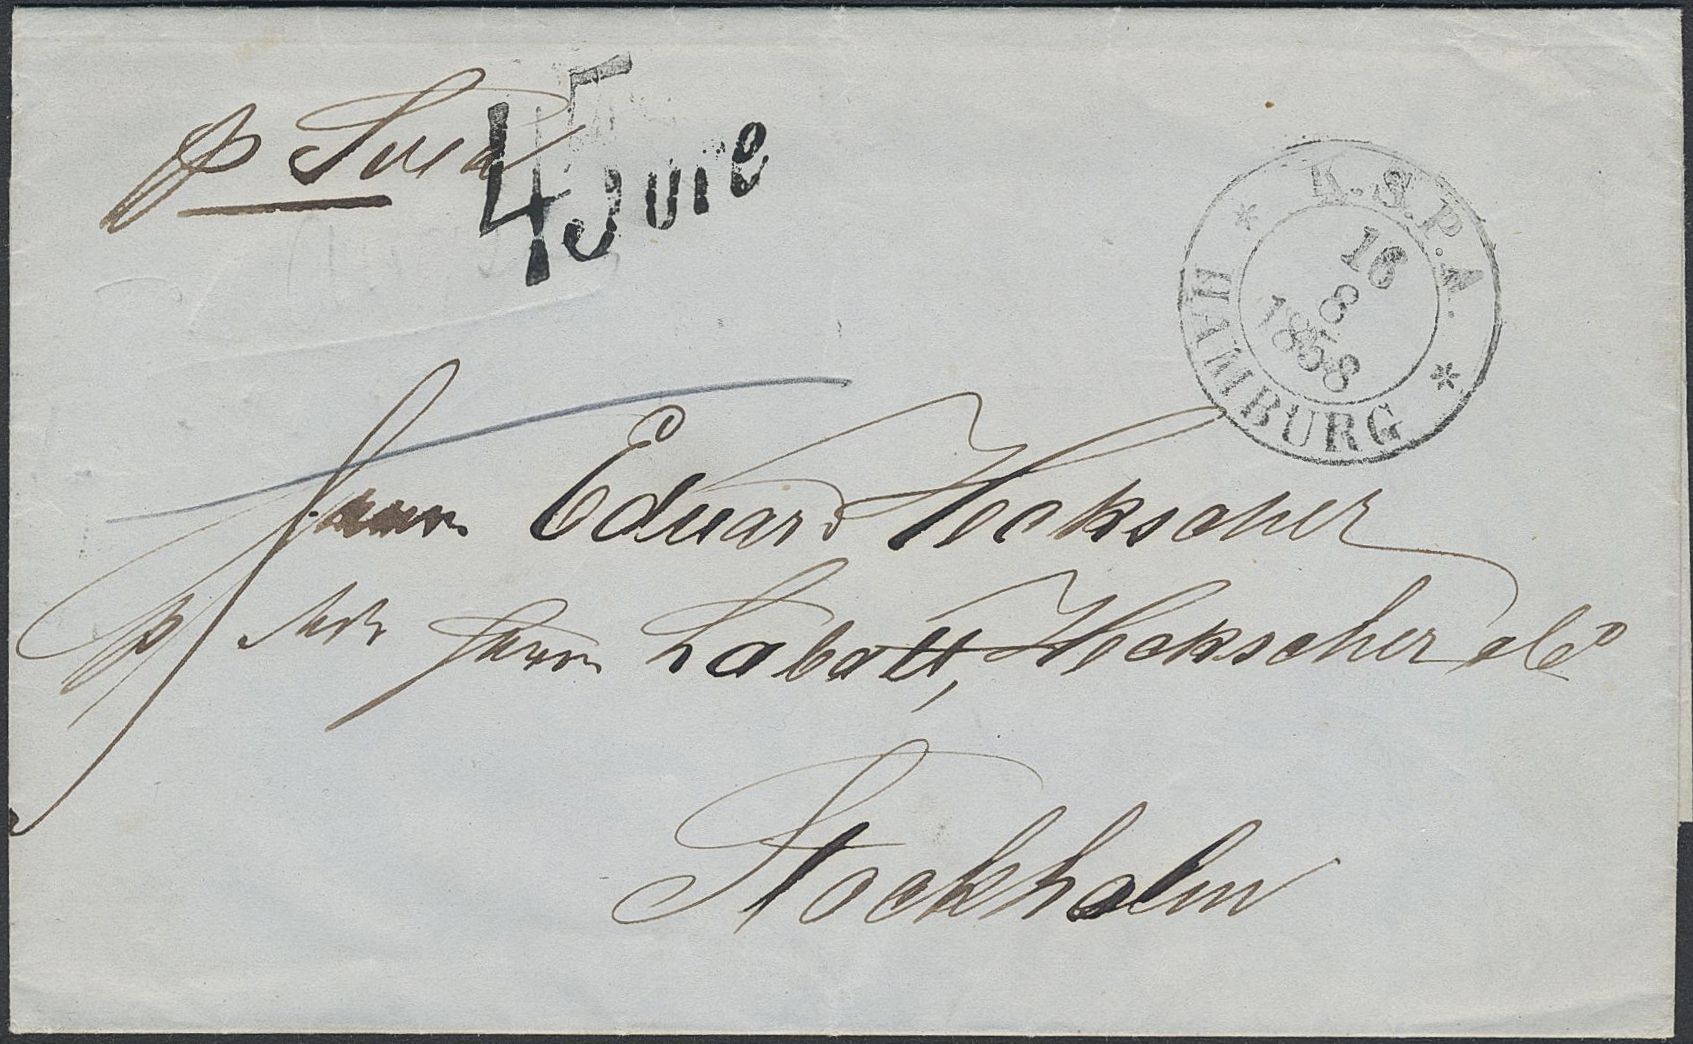 p Svea
45 öre
K.S.P.A.
18
8
1858
HAMBURG
Herrn Eduard Heckscher
p Adr Herrn Labatt, Heckscher & Co
Stockholm